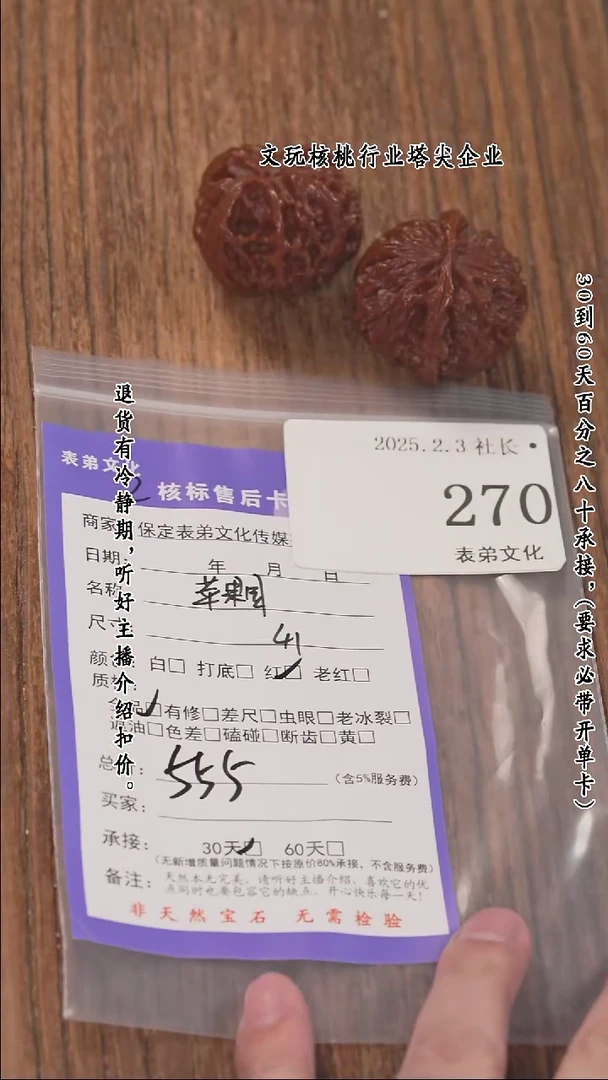 文玩核桃行业塔尖企业
30到60天百分之八十承接，（要求必带开单卡）
退货有冷静期，听好主播介绍扣价。
2025.2.3 社长·
270
表弟文化
表弟文化
核标售后卡
商家 保定表弟文化传媒
日期： 年 月 日
名称 苹果园
尺寸 41
颜色 白□ 打底□ 红☑ 老红□
质
品☑有修□差尺□虫眼□老冰裂□
油□色差□磕碰□断齿□黄□
总 ： 555 （含5%服务费）
买家：
承接： 30天☑ 60天□
（无新增质量问题情况下按原价80%承接，不含服务费）
备注： 天然本无完美，请听好主播介绍，喜欢它的优
点同时也要包容它的缺点，开心快乐每一天！
非天然宝石 无需检验